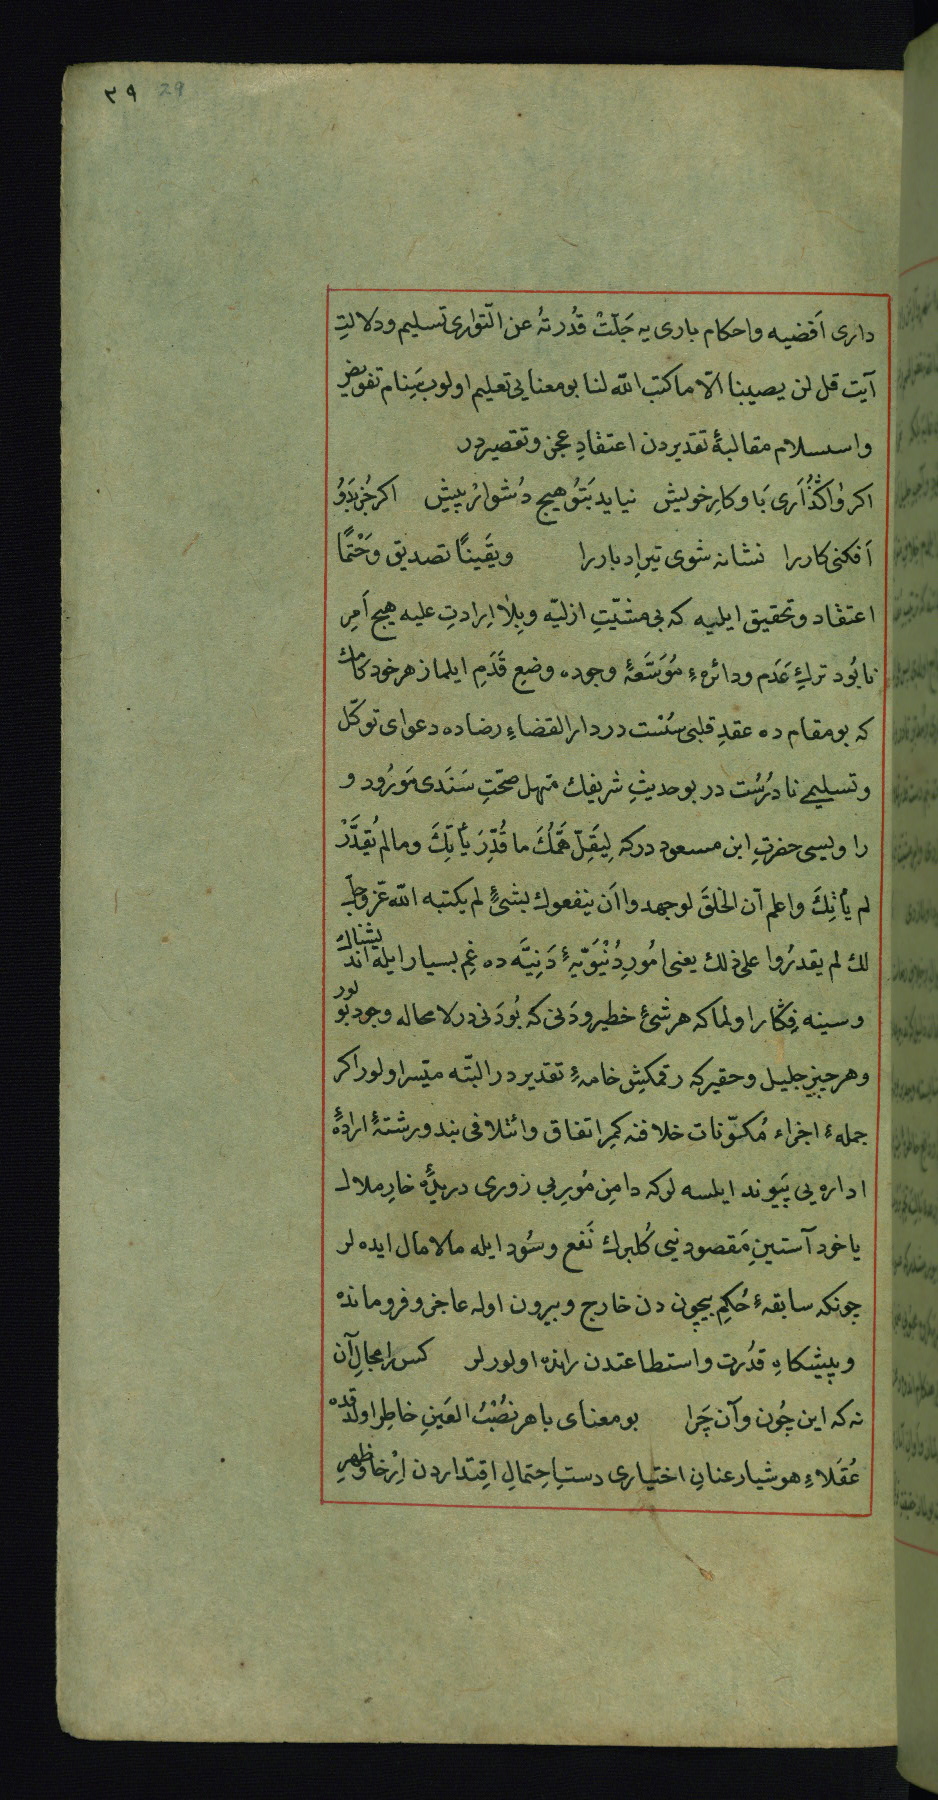 ٢٩ 29
دارى اَقضيه واحكام بارى يه جَلّتْ قُدرتهُ عن التّوارى تسليم ودلالتِ
آيت قل لن يصيبنا الّا ما كتب الله لنا بو معنايى تعليم اولوب سِنام تفويض
واسسلام مقالبهٔ تقديردن اعتقادِ عجز وتقصيردر
اكر واكُذارى بَاو كارِ خويش نيايد بَتوُ هيچ دُشوارْ پيش اكر جُز بَدوُ
اَفكنى كاررا نشانه شوى تيرِ ادباررا ويقَينًا تصديق وحَتْمًا
اعتقاد وتحقيق ايليه كه بى مشيّتِ ازليّه وبِلا اِرادتِ عليه هيچ اَمرِ
نابُود تركِ عَدَم ودائرهٔ مُوَسَّعَهٔ وجوده وضعِ قَدَم ايلماز هر خودكامك
كه بو مقام ده عقدِ قلبى سُنست در دار القضاءِ رضاده دعواى توكّل
وتسليمى نادرُسُت در بو حديثِ شريفك منهل صحّتِ سَنَدى مَورُود و
راويسى حضرتِ ابن مسعود دركه لِيَقِلّ هَمُّكَ ما قُدِّرَ يَأتِكَ وما لم يُقدَّرْ
لم يَأتِكَ واعلم اَنّ الخلقَ لو جهدوا اَن ينفعوك بشئٍ لم يكتبه الله عزّ وجلّ
لك لم يقدرُوا على ذلك يعنى امُورِ دُنْيَوّيهٔ دَنِيَّه ده غمِ بسيار ايله انديشناك
وسينه فِكار اولماكه هر شئ خطير ودَنى كه بُودَنى در لا محاله وجود بولور
وهر چيزِ جليل وحقيركه رقمكشِ خامهٔ تقدير در البتّه ميّسر اولور اكر
جملهٔ اجزاء مُكوّنات خلافنه كمرِ اتفاق وائتلافى بند ورشتهٔ ارادهٔ
اداره يى پَيوند ايلسه لركه دامنِ مُورِ بى زورى دريدهٔ خارِ ملال
ياخود آستينِ مَقصودينى كُلبرك نَفع وسُود ايله مالامال ايده لر
چونكه سابقهٔ حُكمِ بيچون دن خارج وبيرون اوله عاجز وفرومانده
وپيشكاهِ قدُرت واستطاعتدن رانده اولورلر كس را مجالِ آن
نه كه اين چُون وآن چَرا بو معناى باهر نصُبُ العَينِ خاطر اولدقده
عُقَلاءِ هوشيار عنانِ اختيارى دستِ احِتمالِ اقِتداردن اِرْخا وظهرِ